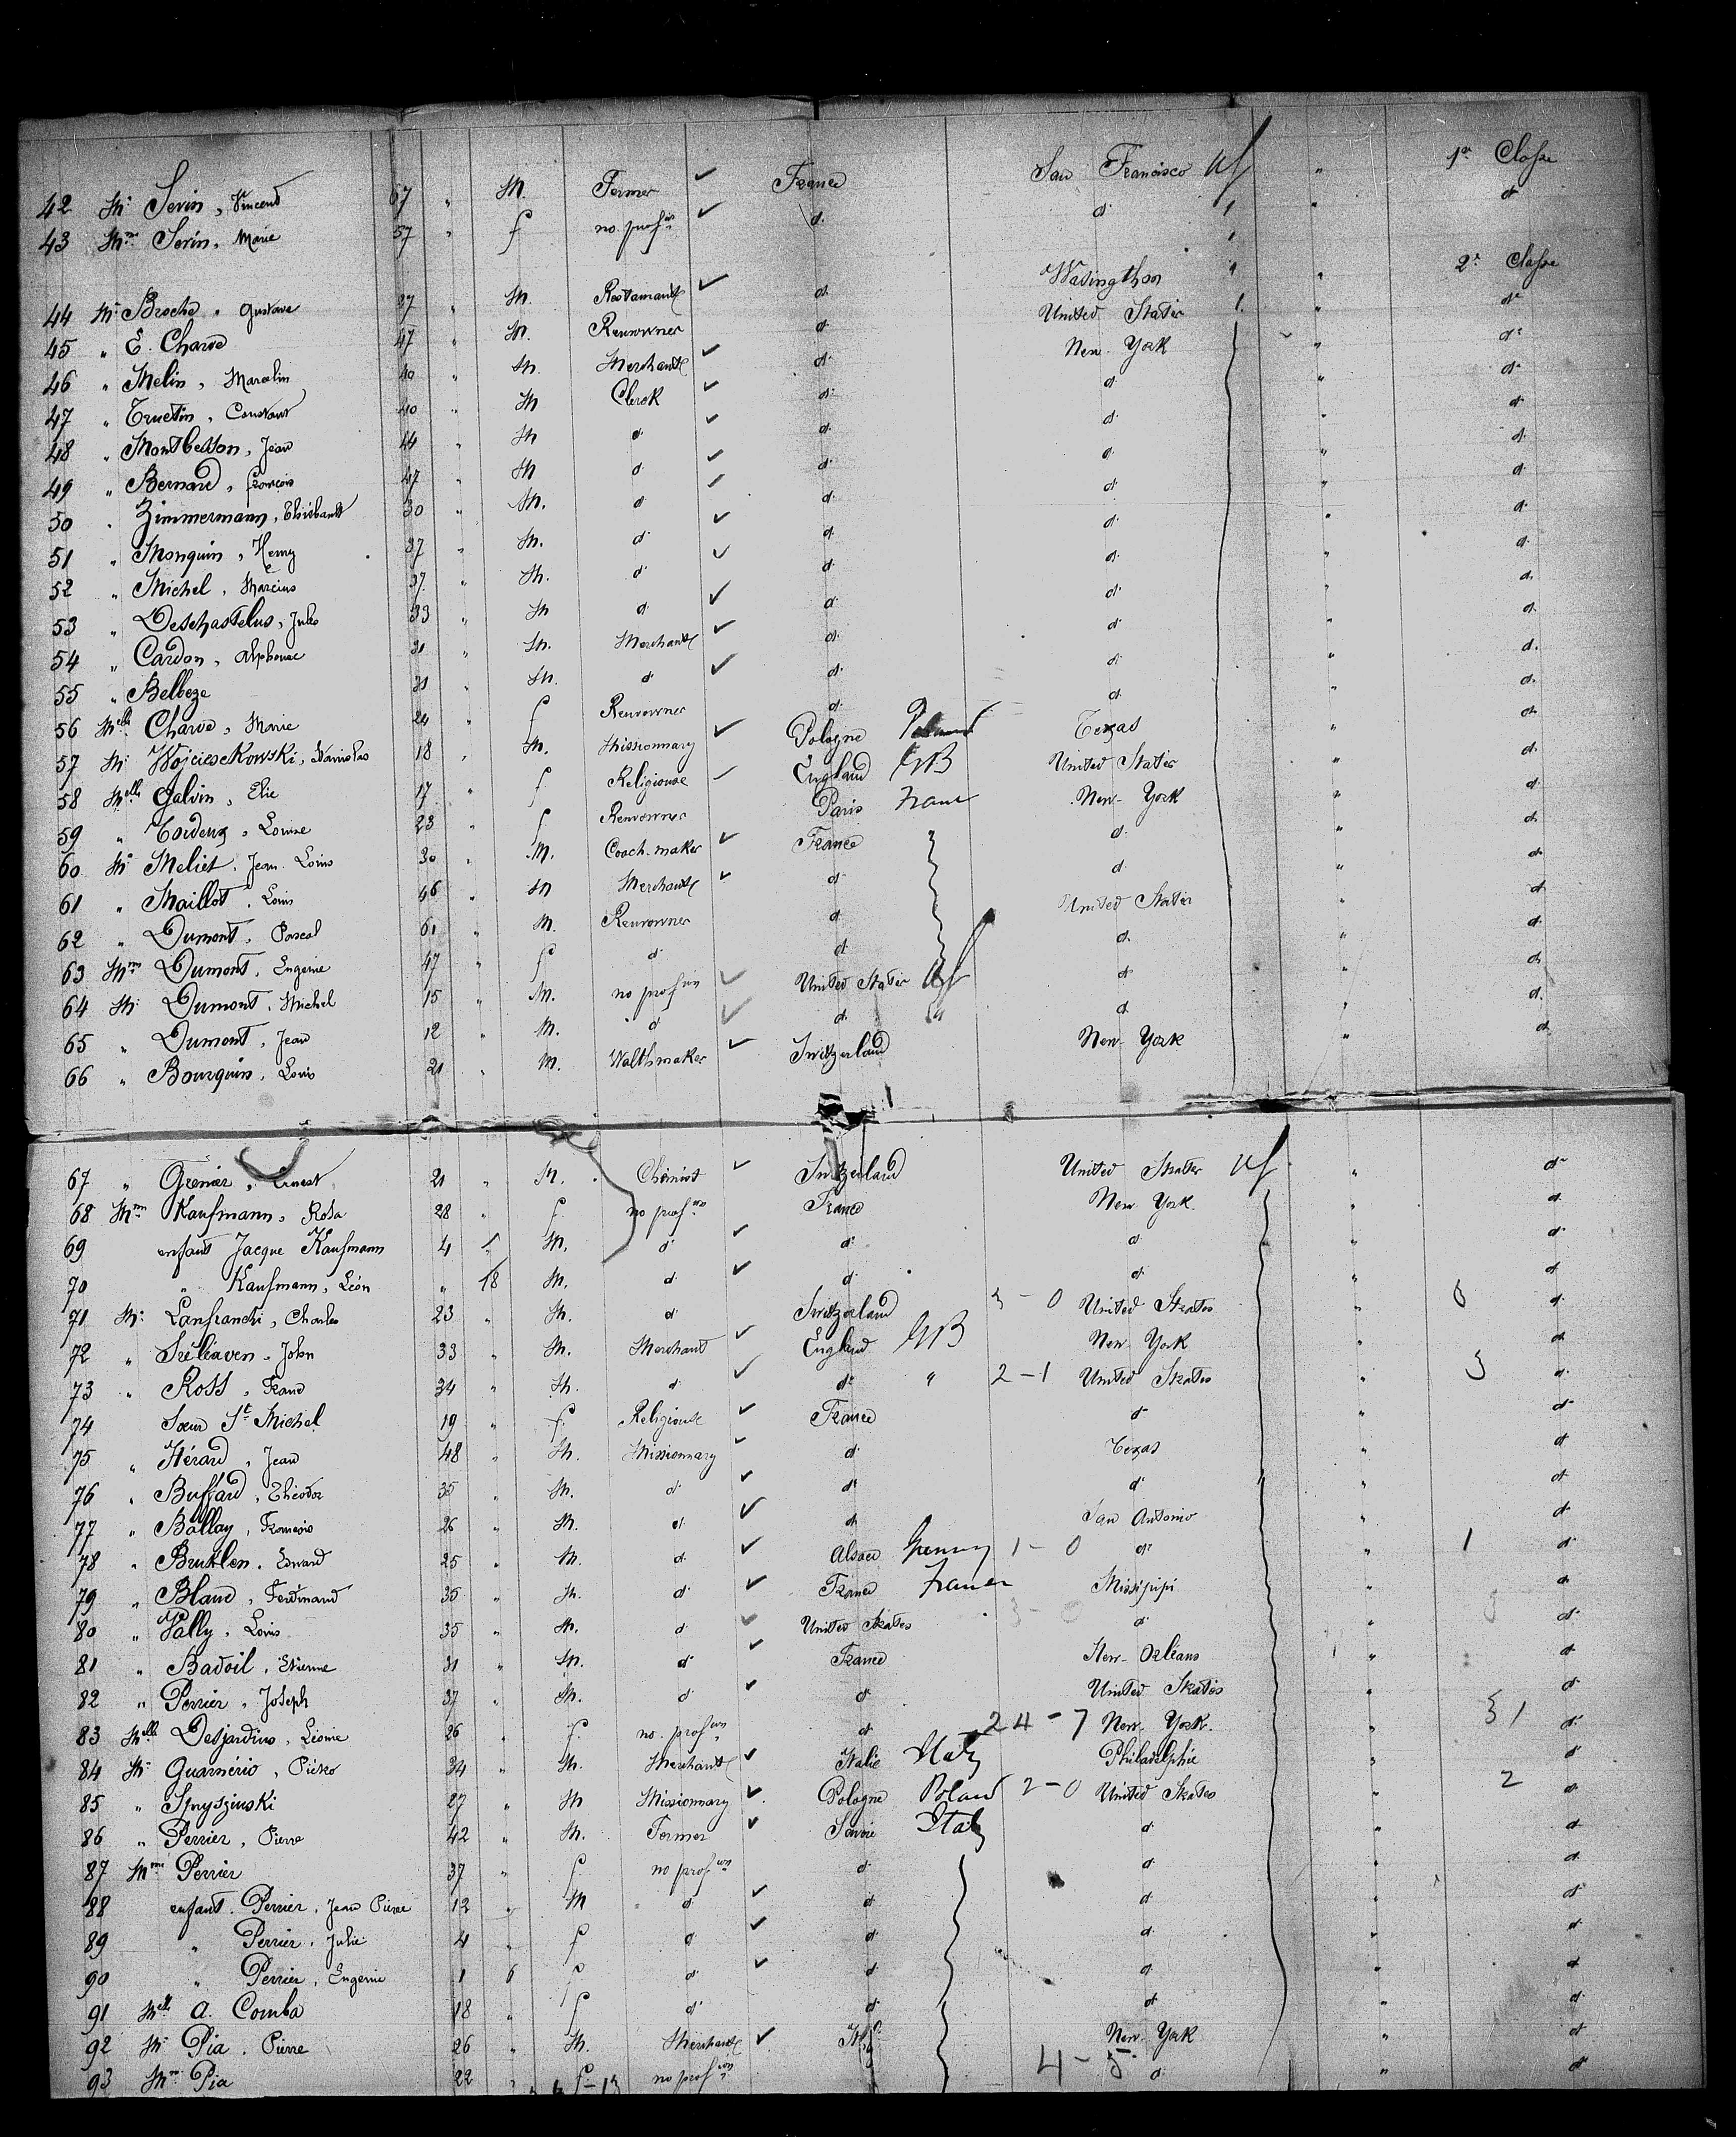 42 Mr Serin, Vincend 67 " M. Fermer ✓ France San Francisco US " 1re Classe
43 Mme Serin, Marie 57 " f no profon ✓ d. d. " " d.
2e Classe
44 Mr Broche, Gustave 27 " M. Restamant ✓ d. Wasingthon " " d.
45 " E. Charve 47 " M. Renvowner d. United States " d.
46 " Melin, Marcelin 40 " M. Merchant ✓ d. New-York " d.
47 " Tructin, Constant 40 " M Clerck ✓ d. d. " d.
48 " Montbetton, Jean 44 " M d. ✓ d. d. " d.
49 " Bernard, François 47 " M d. ✓ d. d. " d.
50 " Zimmermann, 30 " M. d ✓ d. d. " d.
51 " Monquin, Henry 37 " M. d. ✓ d. d. " d.
52 " Michel, Marcius 37 " M. d. ✓ d. d. " d.
53 " Deschastelus, Jules 33 " M d. ✓ d. d. " d.
54 " Cardon, Alphonse 31 " M. Merchant ✓ d. d. " d.
55 " Belbeze 31 " M. d. ✓ d. d. " d.
56 Melle Charve, Marie 24 " f Renvowner d. d. " d.
57 Mr Wojciesckowski, Stanislas 18 " M. Missionnary ✓ Pologne Poland Texas " d.
58 Melle Galvin, Elie 17 " f Religiouse ✓ England GB United States " d.
59 " Tordeux, Louise 23 " f Renvowner Paris France New-York " d.
60 Mr Meliet, Jean Louis 30 " M. Coach-maker ✓ France d. " d.
61 " Maillot, Louis 46 " M Merchant ✓ d. d. " d.
62 " Dumont, Pascal 61 " M. Renvowner d. United States " d.
63 Mme Dumont, Eugenie 47 " f d. d. d. " d.
64 Mr Dumont, Michel 15 " M. no profion ✓ United States US d. " d.
65 " Dumont, Jean 12 " M. d ✓ d. " d. " d.
66 " Bourquin, Louis 21 " M. Walthmaker ✓ Switzerland New-York " d.
67 " Grenier, Ernest 21 " M. Chimist ✓ Switzerland United States US " d.
68 Mme Kaufmann, Rosa 28 " f no profon France New York " d.
69 enfant Jacque Kaufmann 4 " M. d. ✓ d. d. " d.
70 " Kaufmann, Léon " 18 M. d. ✓ d. d. " d.
71 Mr Lanfranchi, Charles 23 " M. d. Switzerland 3-0 United States " d.
72 " Tréleaven, John 33 " M. Merchant ✓ England GB New York " d.
73 " Ross, Franc 34 " M. d. ✓ d. " 2-1 United States " 3 d.
74 Sœur St Michel 19 " f. Religiouse ✓ France d. " d.
75 " Hérard, Jean 48 " M. Missionnary ✓ d. Texas " d.
76 " Buffard, Théodor 35 " M. d. ✓ d. d. " d.
77 " Ballay, François 26 " M. d. ✓ d. San Antonio " d.
78 " Bruklen, Edward 25 " M. d. ✓ Alsace Germny 1-0 d. " 1 d.
79 " Blanc, Ferdinand 35 " M. d. ✓ France France Missipipi " d.
80 " Vally, Louis 35 " M. d. ✓ United States 3-0 d. " 3 d.
81 " Badoil, Etienne 31 " M. d. ✓ France New-Orléans " d.
82 " Perrier, Joseph 37 " M. d. ✓ d. United States " d.
83 Melle Desjardins, Léonie 26 " f. no profion d. 24-7 New-York. " 31 d.
84 Mr Guarnério, Piétro 34 " M. Merchant ✓ Italie Italy Philadelphie " d.
85 " Spryszinski 27 " M Missionnary ✓ Pologne Poland 2-0 United States " 2 d.
86 " Perrier, Pierre 42 " M. Fermer ✓ Savoie Italy d. " d.
87 Mme Perrier 37 " f. no profion d. d. " d.
88 enfant. Perrier, Jean Pierre 12 " M d. ✓ d. d. " d.
89 " Perrier, Julie 4 " f d ✓ d. d. " d.
90 " Perrier, Eugenie 1 6 f d. ✓ d. d. " d.
91 Melle A. Comba 18 " f d. d. d. " d.
92 Mr Pia, Pierre 26 " M. Merchant ✓ New-York " d.
93 Mme Pia 22 " f-13 no profion 4-5 d. " d.